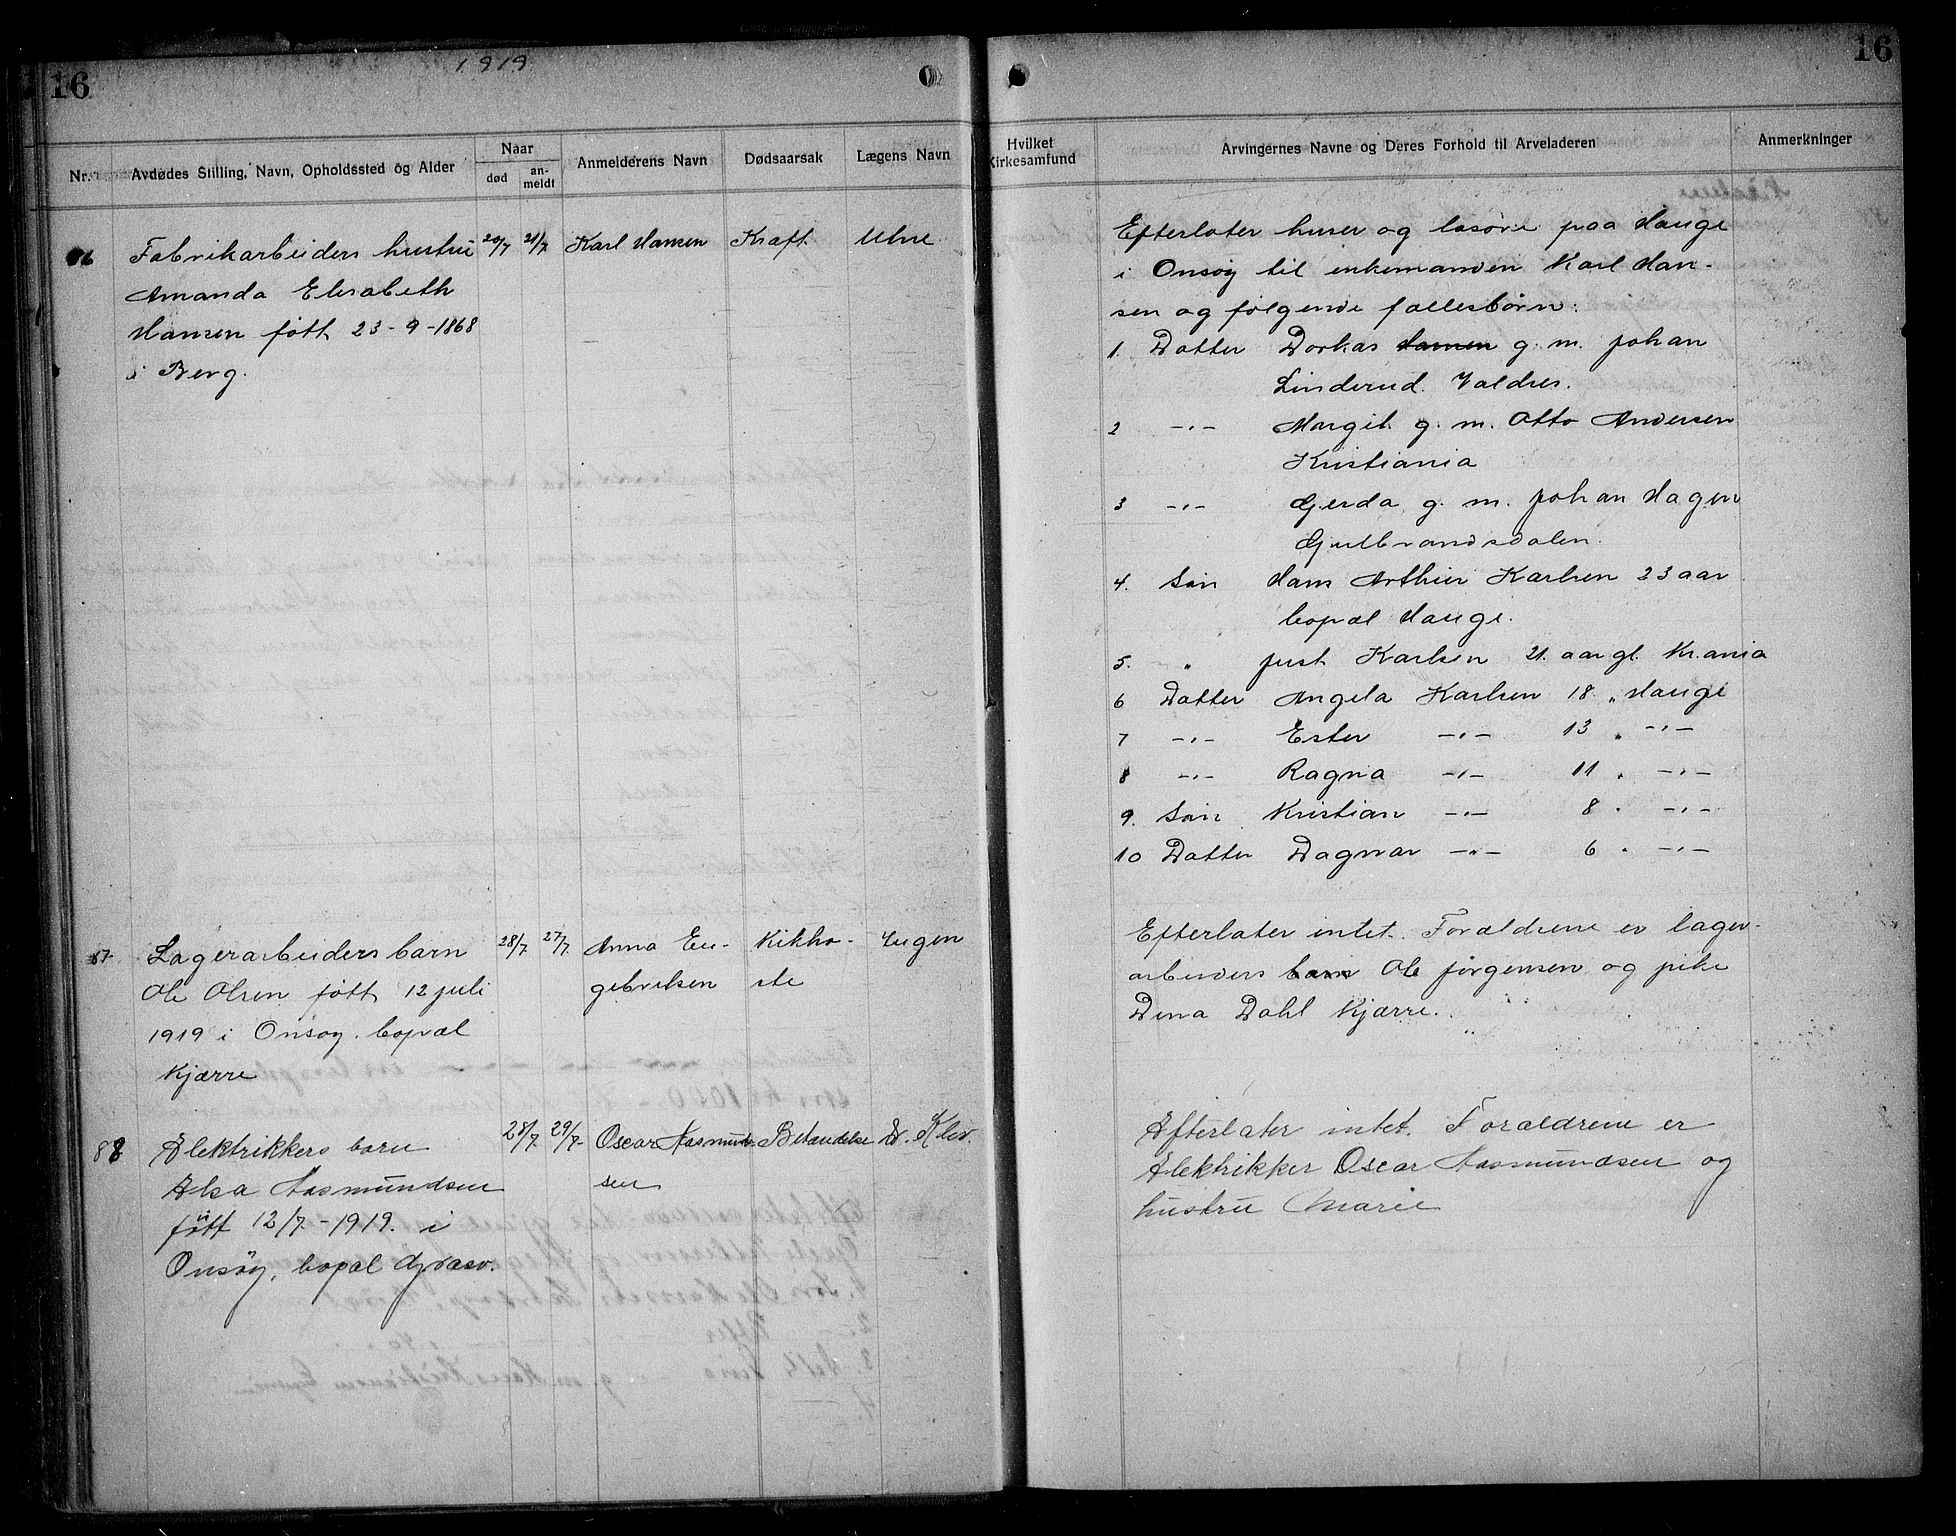 16
1919
16
Nr.
Avdødes Stilling, Navn, Opholdssted og Alder
Naar
død
an-
meldt
Anmelderens Navn
Dødsaarsak
Lægens Navn
Hvilket
Kirkesamfund
Arvingernes Navne og Deres Forhold til Arveladeren
Anmerkninger
86
Fabrikarbeiders hustru
Amanda Elisabeth
Hansen født 23-9-1868
i Berg.
20/7
21/7
Karl Hansen
Kræft
Efterlater huser og løsøre paa Hauge
i Onsøy til enkemanden Karl Han-
sen og følgende fællesbörn:
1. Datter Dorkas Hansen g. m. Johan
Linderud. Valdres.
2 -"- Margit g. m. Otto Andersen
Kristiania
3 -"- Gerda g. m. Johan Hagen
Gudbrandsdalen.
4. Sön Hans Arthur Karlsen 23 aar
bopæl Hauge.
5. " Just Karlsen 21. aar gl. Kr.ania
6 Datter Angela Karlsen 18 " Hauge
7 -"- Ester -"- 13 " -"-
8 -"- Ragna -"- 11 " -"-
9. Sön Kristian -"- 8 " -"-
10 Datter Dagnar -"- 6 " -"-
87
Lagerarbeiders barn
Ole Olsen født 12 juli
1919 i Onsøy. bopæl
Kjærre
28/7
27/7.
Anna En-
gebretsen
Kikho-
ste
Jugen
Efterlater intet. Forældrene er lager-
arbeiders barn Ole Jörgensen og pike
Dina Dahl Kjærre.
88
Elektrikkers barn
Elsa Aasmundsen
født 12/7.-1919. i
Onsöy, bopæl Græsv.
28/7.
29/7-
Oscar Aasmund-
sen
Betændelse
Dr. Klev.
Efterlater intet. Forældrene er
Elektrikker Oscar Aasmundsen og
hustru Marie